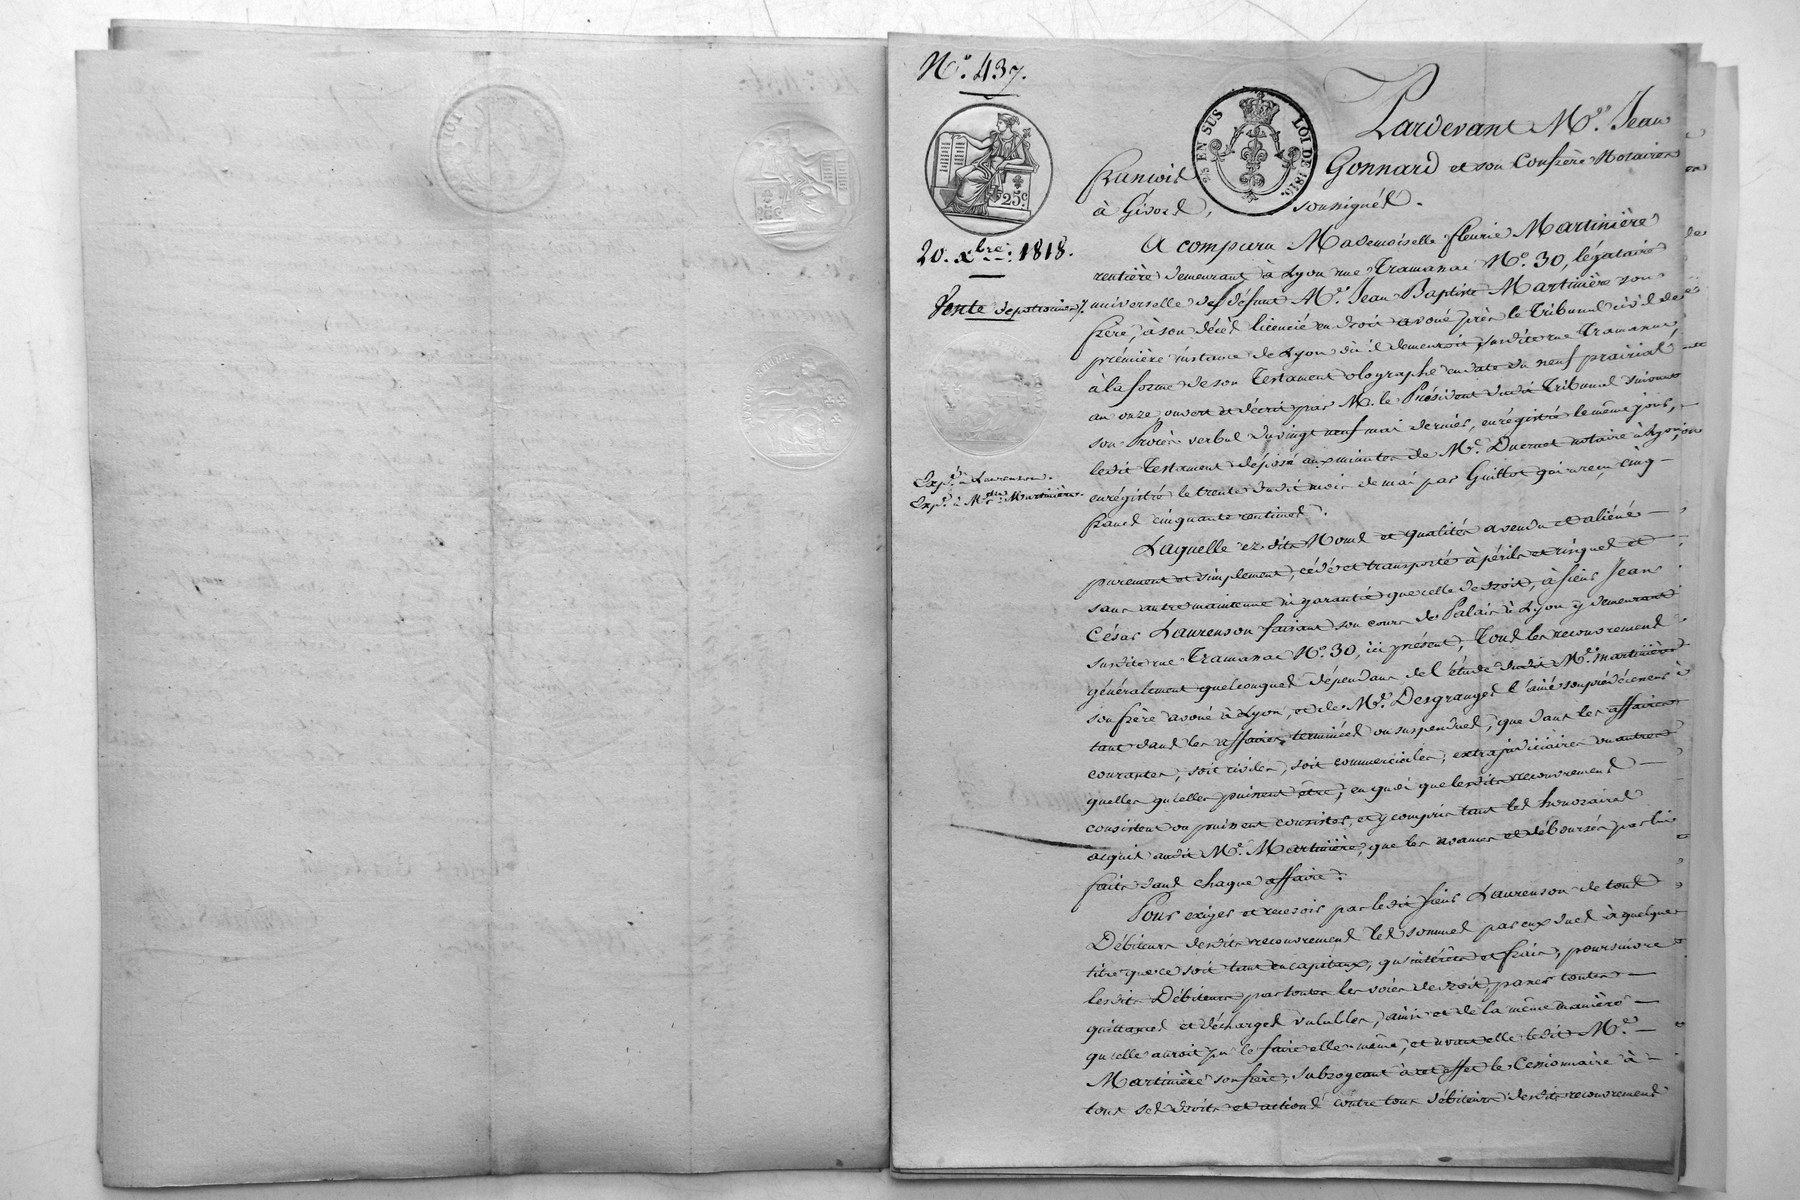 N.º 437.
25 EN SUS
LOI DE 1816.
25.c
20. xbre. 1818.
Vente de patrimoine
Exp.é à Laurenson.
Exp.é à M.elle Martinière.
Pardevant M.e Jean
François Gonnard et son Confrère Notaires
à Givors, soussignés.
A comparu Mademoiselle fleurie Martinière
rentière demeurant à Lyon rue Tramanac N.º 30, légataire
universelle de défunt M.e Jean Baptiste Martinière son
frère, à son décès licencié en droit avoué près le Tribunal civil de
première instance de Lyon où il demeuroit, susdite rue Tramanac,
à la forme de son Testament olographe en date du neuf prairial
an onze, ouvert et décrit par M. le Président dudit Tribunal suivant
son Procès verbal du vingt neuf mai dernier, enregistré le même jour,
ledit Testament déposé aux minutes de M.e Ducruet notaire à Lyon,
enrégistré le trente dudit mois de mai par Guillot qui a reçu cinq
francs cinquante centimes.
Laquelle ez dits Noms et qualités a vendu et aliéné
purement et simplement, cédé et transporté à périls et risques et
sans autre maintenue ni garantie que celle de droit, à sieur Jean
César Laurenson faisant son cours de Palais à Lyon y demeurant
susdite rue Tramanac N.º 30, ici présent, Tous les recouvrements
généralement quelconques dépendans de l'étude dudit M.e Martinière
son frère avoué à Lyon, et de M.e Desgranges l'ainé son prédécesseur
tant dans les affaires terminées ou suspendues, que dans les affaires
courantes, soit civiles, soit commerciales, extrajudiciaires ou autres
quelles qu'elles puissent être, en quoi que lesdits recouvrements
consistent ou puissent consister, et y compris tant les honoraires
acquis audit M.e Martinière, que les avances et déboursés par lui
faits dans chaque affaire.
Pour exiger et recevoir par ledit sieur Laurenson de tous
Débiteurs desdits recouvrements les sommes par eux dues à quelque
titre que ce soit tant en capitaux, qu'intérêts et frais, poursuivre
lesdits Débiteurs par toutes les voies de droit, passer toutes
quittances et décharges valables, ainsi et de la même manière
qu'elle auroit pu le faire elle-même, et avant elle ledit M.e
Martinière son frère, subrogeant à cet effet le Cessionnaire à
tous ses droits et actions contre tous débiteurs desdits recouvrements